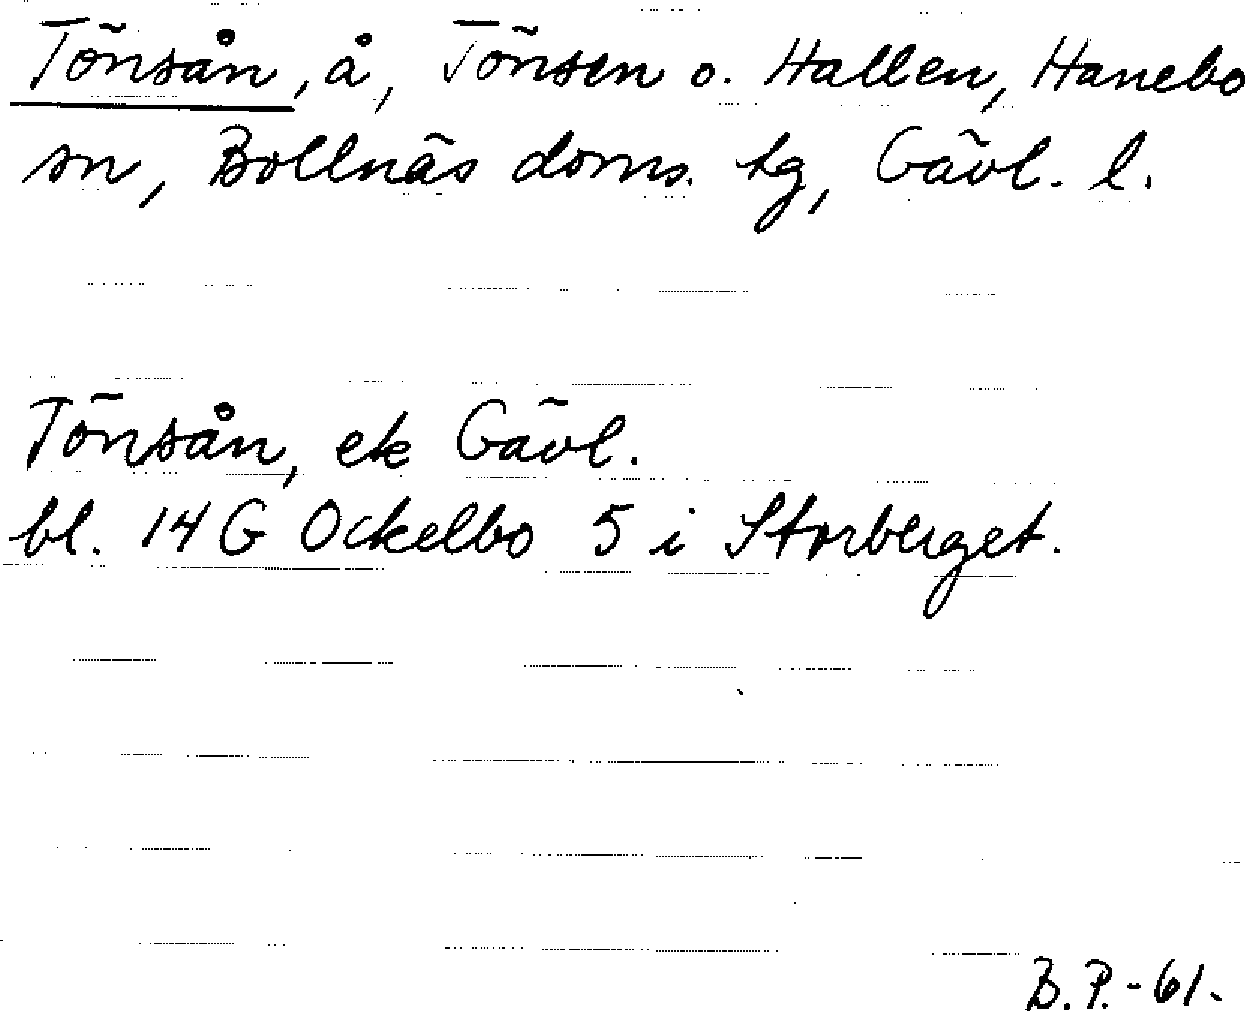 Tönsån, å, Tönsen o. Hallen, Hanebo
sn, Bollnäs doms. tg, Gävl. l.
Tönsån, ek Gävl.
bl. 14 G Ockelbo 5 i Storberget.
B.P.-61.